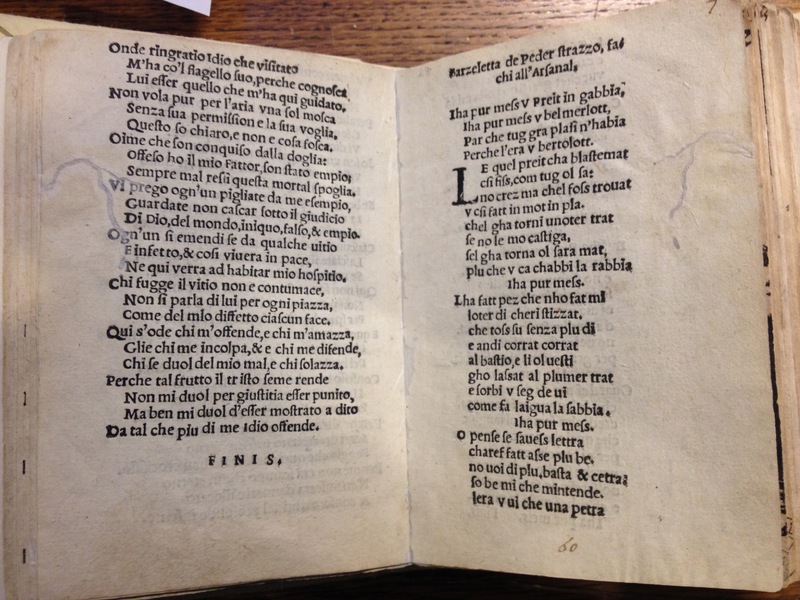 Onde ringratio Idio che visitato
M'ha co'l flagello suo, perche cognosca
Lui esser quello che m'ha qui guidato.
Non vola pur per l'aria vna sol mosca
Senza sua permission e la sua voglia,
Questo so chiaro, e non e cosa fosca.
Oime che son conquiso dalla doglia:
Offeso ho il mio Fattor, son stato empio:
Sempre mal ressi questa mortal spoglia.
Vi prego ogn'un pigliate da me esempio,
Guardate non cascar sotto il giudicio
Di Dio, del mondo, iniquo, falso, & empio.
Ogn'un si emendi se da qualche uitio
E infetto, & cosi viuera in pace,
Ne qui verra ad habitar mio hospitio.
Chi fugge il vitio non e contumace,
Non si parla di lui per ogni piazza,
Come del mio diffetto ciascun face.
Qui s'ode chi m'offende, e chi m'amazza,
Glie chi me incolpa, & e chi me difende,
Chi se duol del mio mal, e chi solazza.
Perche tal frutto il tristo seme rende
Non mi duol per giustitia esser punito,
Ma ben mi duol d'esser mostrato a dito
Da tal che piu di me Idio offende.
FINIS.
Barzeletta de Peder strazzo, fa-
chi all'Arsanal.
Iha pur mess v Preit in gabbia,
Iha pur mess v bel merlott,
Par che tug gra plasi n'habia
Perche l'era v bertolott.
LE quel preit cha blastemat
csi fiss, com tug ol sa:
no crez ma chel foss trouat
v csi fatt in mot in pla.
chel gha torni unoter trat
se no le mo castiga,
sel gha torna ol sara mat,
plu che v ca chabbi la rabbia
Iha pur mess.
Lha fatt pez che nho fat mi
loter di cheri stizzat.
che toss su senza plu di
e andi corrat corrat
al bastio, e li ol uesti
gho lassat al plumer trat
e sorbi v seg de ui
come fa laigua la sabbia.
Iha pur mess.
O pense se sauess lettra
charef fatt asse plu be.
no uoi di plu, basta & cetra:
so be mi che mintende.
lera v ui che una petra
60